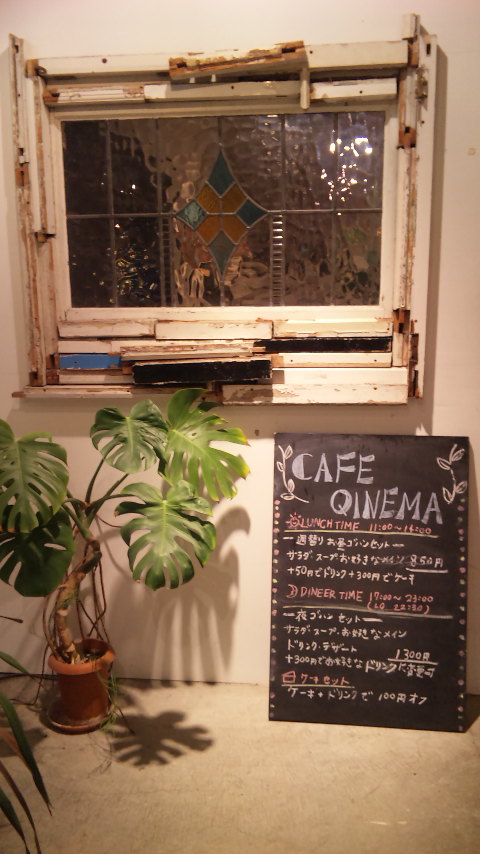 CAFE
QINEMA
LUNCH TIME 11:00～16:00
週替りお昼ゴハンセット
サラダ スープ お好きなメイン 850円
+50円でドリンク+300円でケーキ
DINEER TIME 17:00～23:00
(LO 22:30)
夜ゴハンセット
サラダ・スープ・お好きなメイン
ドリンク・デザート
1300円
+300円でお好きなドリンクに変更可
ケーキセット
ケーキ+ドリンクで100円オフ